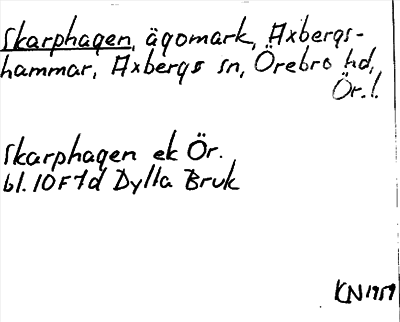 Skarphagen, ägomark, Axbergs-
hammar, Axbergs sn, Örebro hd,
Ör.l.
Skarphagen ek Ör.
bl. 10F7d Dylta Bruk
KN 1959